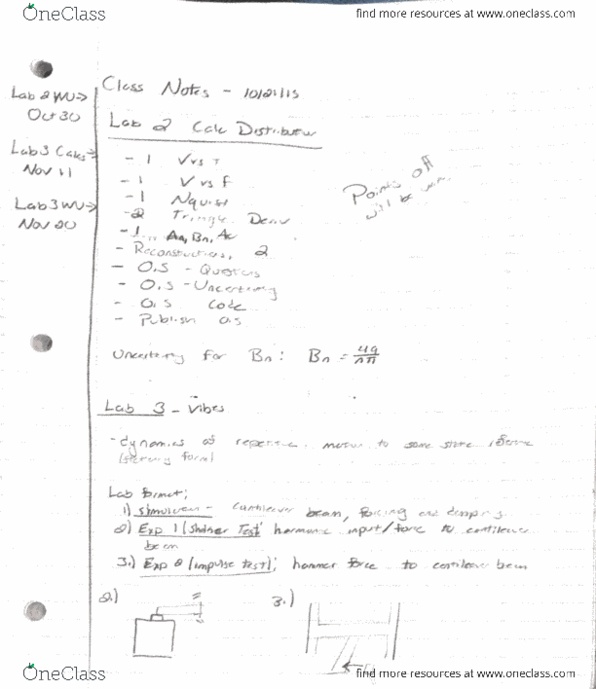 OneClass
find more resources at www.oneclass.com
Class Notes - 10/21/15
Lab 2 WU->
Oct 30
Lab 2 Calc Distribution
Lab 3 Calcs->
Nov 11
Lab 3 WU->
Nov 20
- 1 V vs T
- 1 V vs f
- 1 Nquist
-2 Triangle Deriv
- 1
Points off
will be
- Reconstructions, 2
- 0.5 - Questions
- 0.5 - Uncertainty
- 0.5 Code
- Publish 0.5
Uncertainty for Bn: Bn =
Lab 3 - Vibes
- dynamics of repetitive motion to some
Lab format;
1) Simulation - Cantilever beam, forcing and damping
2) Exp 1 (Shaker Test) harmonic input/force to cantilever
beam
3.) Exp 2 (impulse test); hammer force to cantilever beam
2.)
3.)
OneClass
find more resources at www.oneclass.com